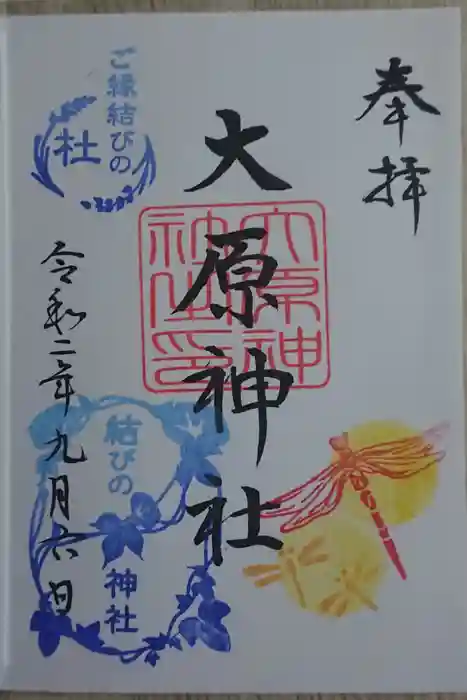 奉拝
大原神社
大原神社印
ご縁結びの
社
令和二年九月六日
結びの
神社